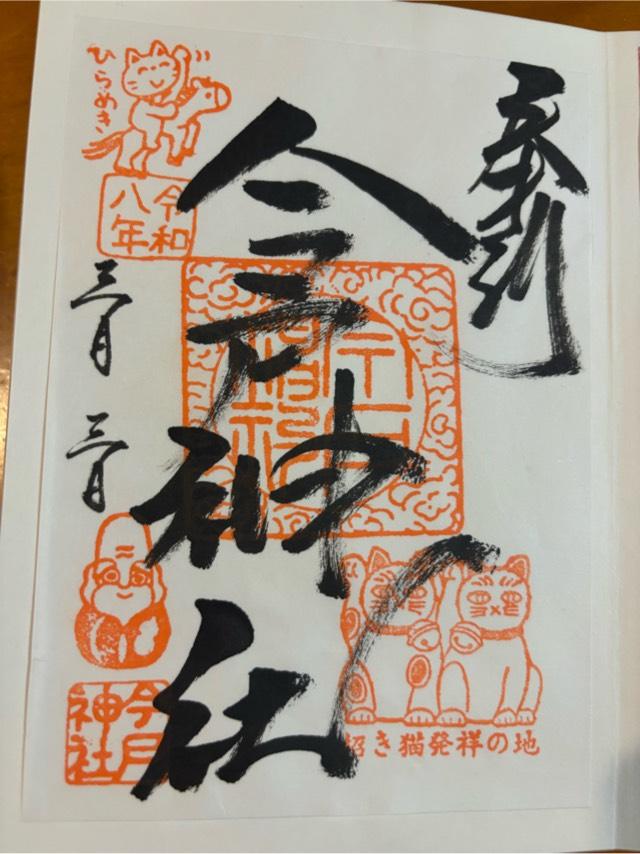 奉拝
今戸神社
ひらめき
令和
八年
三月
三日
今戸
神社
招き猫発祥の地